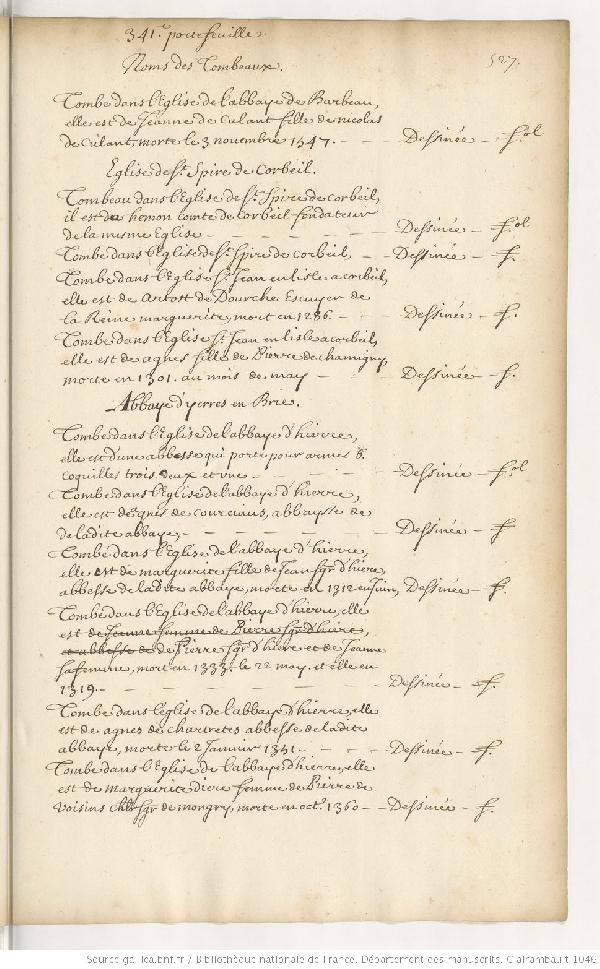 341.e portefeuille.
527.
Noms des Tombeaux.
Tombe dans l'Eglise de l'abbaye de Barbeau,
elle est de Jeanne de Culant fille de nicolas
de Culant, morte le 3 novembre 1547. - - - Dessinée - f.ol
Eglise de St. Spire de Corbeil.
Tombeau dans l'Eglise de St. Spire de Corbeil,
il est de hemon Comte de Corbeil fondateur
de la mesme Eglise - - - - - Dessinée - f.ol
Tombe dans l'Eglise de St. Spire de Corbeil, - Dessinée - f.
Tombe dans l'Eglise St. Jean en lisle a Corbeil,
elle est de Artost de Dourche Escuyer de
la Reine marguerite, mort en 1286. - - Dessinée - f.
Tombe dans l'Eglise St. Jean en lisle a Corbeil,
elle est de agnes fille de Pierre de chamigny,
morte en 1301. au mois de may - - Dessinée - f.
Abbaye d'yerres en Brie.
Tombe dans l'Eglise de l'abbaye d'hierre,
elle est d'une abbesse qui porte pour armes 6.
coquilles trois deux et une - - - Dessinée - f.ol
Tombe dans l'Eglise de l'abbaye d'hierre,
elle est de agnes de abbaysse de
de ladite abbaye, - - - - - Dessinée - f
Tombe dans l'Eglise de l'abbaye d'hierre,
elle est de marguerite fille de Jean sgr. d'hiere,
abbesse de ladite abbaye, morte en 1312 en Juin, Dessinée - f.
Tombe dans l'Eglise de l'abbaye d'hierre, elle
est de Jeanne femme de Pierre sgr. d'hiere,
et abbesse de de Pierre sgr. d'hiere et de Jeanne
sa femme, mort en 1333. le 22 may. et elle en
1319. - - - - - - Dessinée - f.
Tombe dans l'église de l'abbaye d'hierre, elle
est de agnes de chartretes abbesse de ladite
abbaye, morte le 2 Janvier 1351. - - - Dessinée - f.
Tombe dans l'Eglise de l'abbaye d'hierre, elle
est de marguerite femme de Pierre de
Voisins sgr. de mongry, morte en oct. 1360 - - Dessinée - f.
Source gallica.bnf.fr / Bibliothèque nationale de France. Département des manuscrits. Clairambault 1046